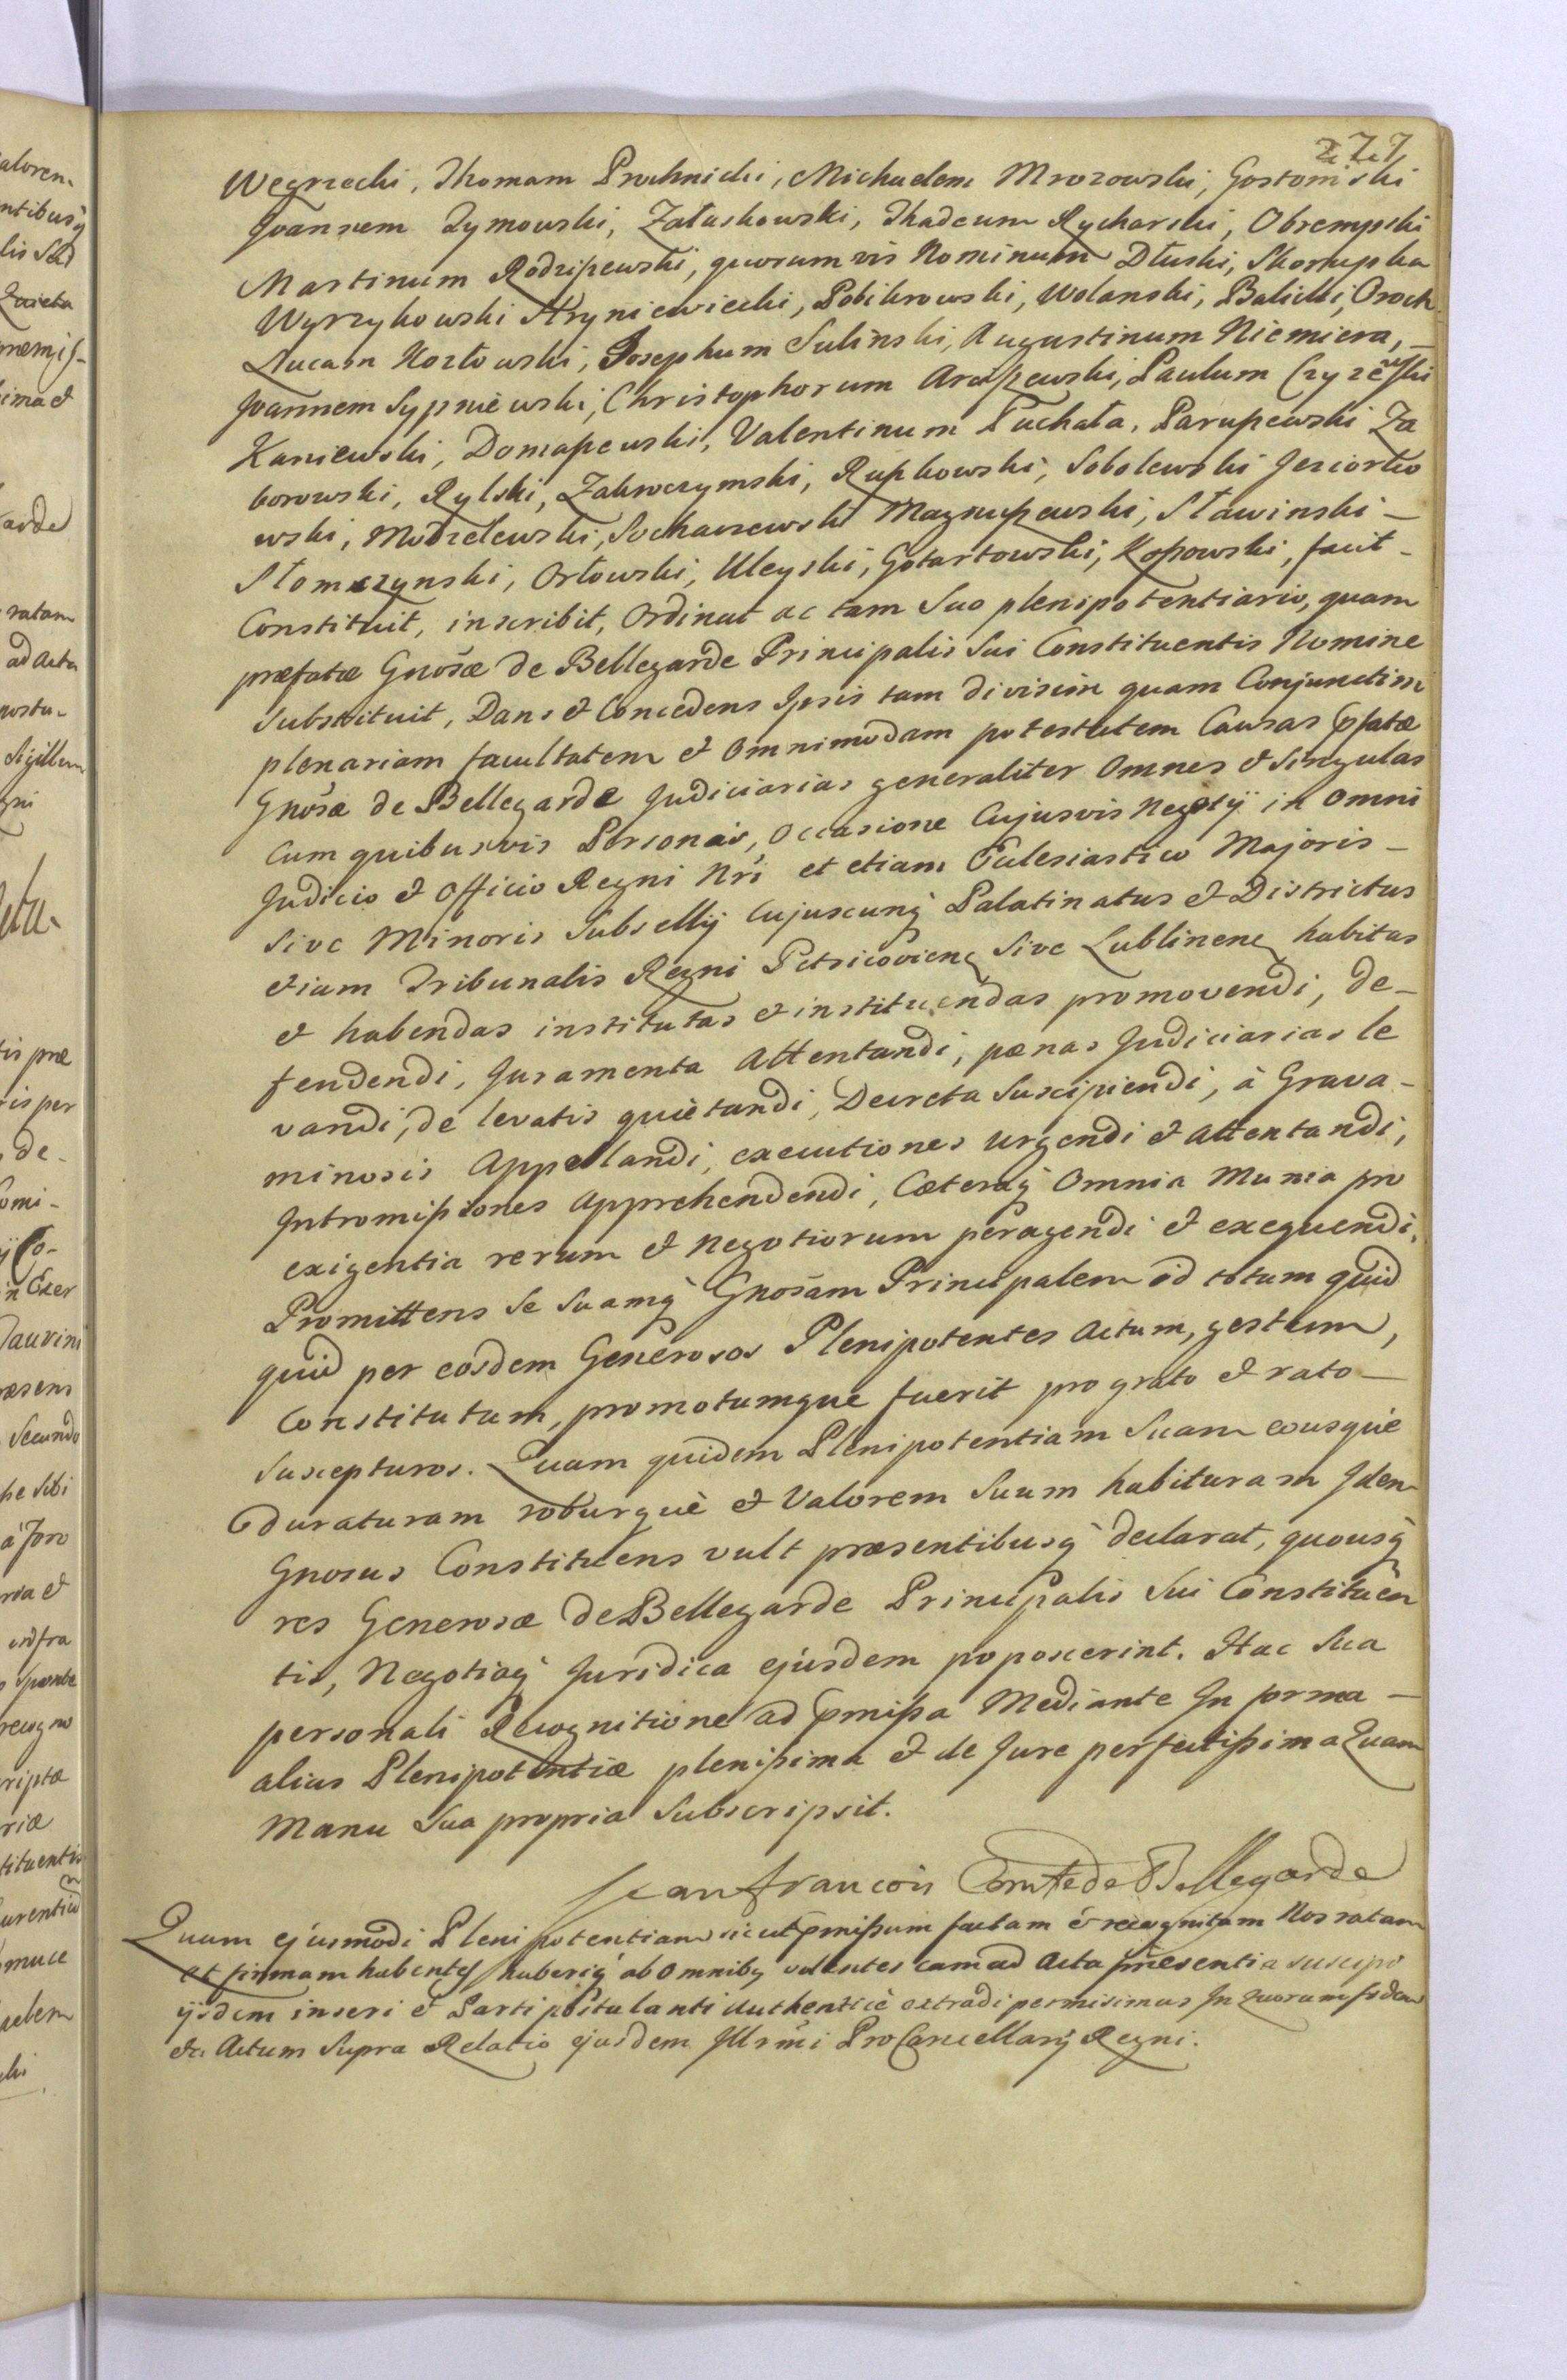 277
Wegrzecki, Thomam Prochnicki, Michaelem Mrozowski, Gostomski
Joannem Dymowski, Załuskowski, Thadeum Rycharski, Obrempski
Martinum Rodzipewski, quorumvis Nominum Dłuski, Skorupka
Wyrzykowski Hryniewiecki, Pobikrowski, Wolanski, Balicki, Oroch
Lucam Kozłowski, Josephum Sulinski, Augustinum Niemiera, –
Joannem Sypniewski, Christophorum Arcipewski, Paulum Czyżewski
Kaniewski, Domapewski, Valentinum Puchała, Parupewski Za
borowski, Rylski, Zakroczymski, Rupkowski, Sobolewski Jeziorko
wski, Modzelewski, Sochaczewski Magnupewski, Sławinski –
Słomczynski, Orłowski, Uleyski, Gotartowski, Kossowski, facit –
Constituit, inscribit, Ordinat ac tam Suo plenipotentiario, quam
præfatæ Gnosæ de Bellegarde Principalis Sui Constituentis Nomine
Substituit, Dans & Concedens Ipsis tam divisim quam Conjunctim
plenariam facultatem & Omnimodam potestatem Causas Pfatæ
Gnosæ de Bellegarde Judiciarias generaliter Omnes & Singulas
Cum quibusvis Personis, Occasione Cujusvis Negotij in Omni
Judicio & Officio Regni Nri et etiam Eclesiastico Majoris –
Sive Minoris Subsellij Cujuscunq Palatinatus & Districtus
etiam Tribunalis Regni Petricovien Sive Lublinen habitas
& habendas institutas & instituendas promovendi, de–
fendendi, Juramenta Attentandi, pænas Judiciarias le
vandi, de levatis quietandi, Decreta Suscipiendi, à Grava –
minosis Appellandi, executiones Urgendi & Attentandi,
Intromissiones Apprehendendi, Cæteraq Omnia Munia pro
exigentia rerum & Negotiorum peragendi & exequendi,
Promittens Se Suamq Gnosam Principalem id totum quid
quid per eosdem Generosos Plenipotentes Actum, gestum,
Constitutum, promotumque fuerit pro grato & rato –
Suscepturos. Quam quidem Plenipotentiam Suam eousque
duraturam roburque & Valorem Suum habituram Iden
Gnosus Constituens vult præsentibusq declarat, quousq
res Generosæ de Bellegarde Principalis Sui Constituen
tis, Negotiaq Juridica ejusdem poposcerint. Hac Sua
personali Recognitione ad Pmissa Mediante In forma –
alias Plenipotentiæ plenissima & de Jure perfectissima Quam
Manu Sua propria Subscripsit.
Jean françois Comte de Bellegarde
Quam ejusmodi Plenipotentiam sicut Pmissum factam & recognitam Nos ratam
et firmam habentes haberiq ab Omnibq volentes eam ad Acta præsentia suscipi
ijsdem inseri & Parti postulanti Authentice extradi permisimus In quorum fidem
&c. Actum Supra Relatio ejusdem Illrmi ProCancellarij Regni.